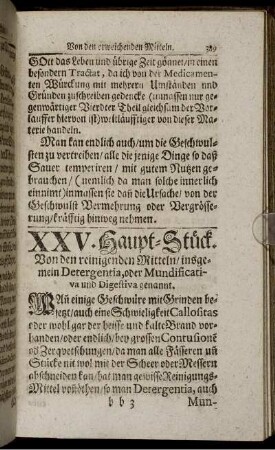 Von den erweichenden Mitteln. 389
GOtt das Leben und übrige Zeit gönnet/in einen
besondern Tractat, da ich von der Medicamen-
ten Würckung mit mehrern Umständen und
Gründen zuschreiben gedencke (immassen nur ge-
genwärtiger Vierdter Theil gleichsam der Vor-
läuffer hiervon ist) weitläufftiger von dieser Ma-
terie handeln.
Man kan endlich auch/um die Geschwul-
sten zu vertreiben/alle die jenige Dinge so daß
Sauer temperiren / mit gutem Nutzen ge-
brauchen/ (nemlich da man solche innerlich
einnimt)inmassen sie daß die Ursache/von der
Geschwulst Vermehrung oder Vergrösse-
rung/kräfftig hinweg nehmen.
XXV. Haupt-Stück.
Von den reinigenden Mitteln/ insge-
mein Detergentia, oder Mundificati-
va und Digestiva genannt.
WAñ einige Geschwüre mit Grinden be-
setzt/auch eine Schwieligkeit Callositas
oder wohl gar der heisse und kalte Brand vor-
handen/oder endlich/bey grossen Contusionẽ
als Zerquetschungen/da man alle Fässeren uñ
Stücke nit wol mit der Scheer oder Messern
abschneiden kan/hat man gewisse Reinigungs-
Mittel vonnöthen/so man Detergentia, auch
b b 3 Mun-